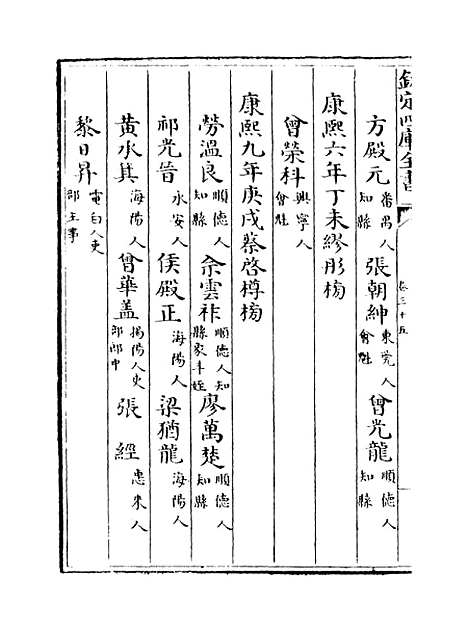 欽定四庫全書
卷三十五
方殿元 番禺人知縣 張朝紳 東莞人會魁 曾光龍 順德人知縣
康熙六年丁未繆彤榜
曾榮科 興寧人會魁
康熙九年庚戌蔡啓樽榜
勞溫良 順德人知縣 佘雲祚 順德人知縣象斗姪 廖萬楚 順德人知縣
祁光晉 永安人 侯殿正 海陽人 梁猶龍 海陽人
黄水其 海陽人 曾華盖 揭陽人吏部郎中 張經 惠來人
黎日昇 電白人吏部主事